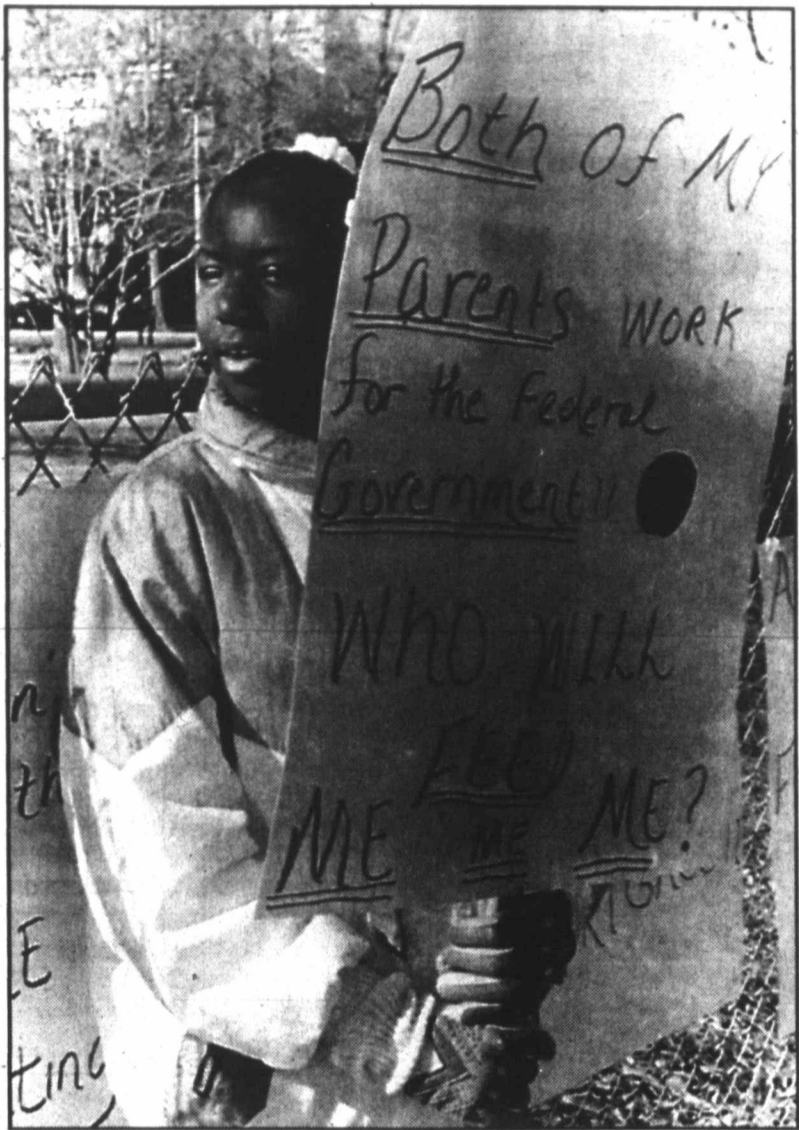 Both of MY
Parents WORK
for the Federal
Government!!
WHO WILL
FEED
ME ME ME?
n'
th
E
ting
A
F